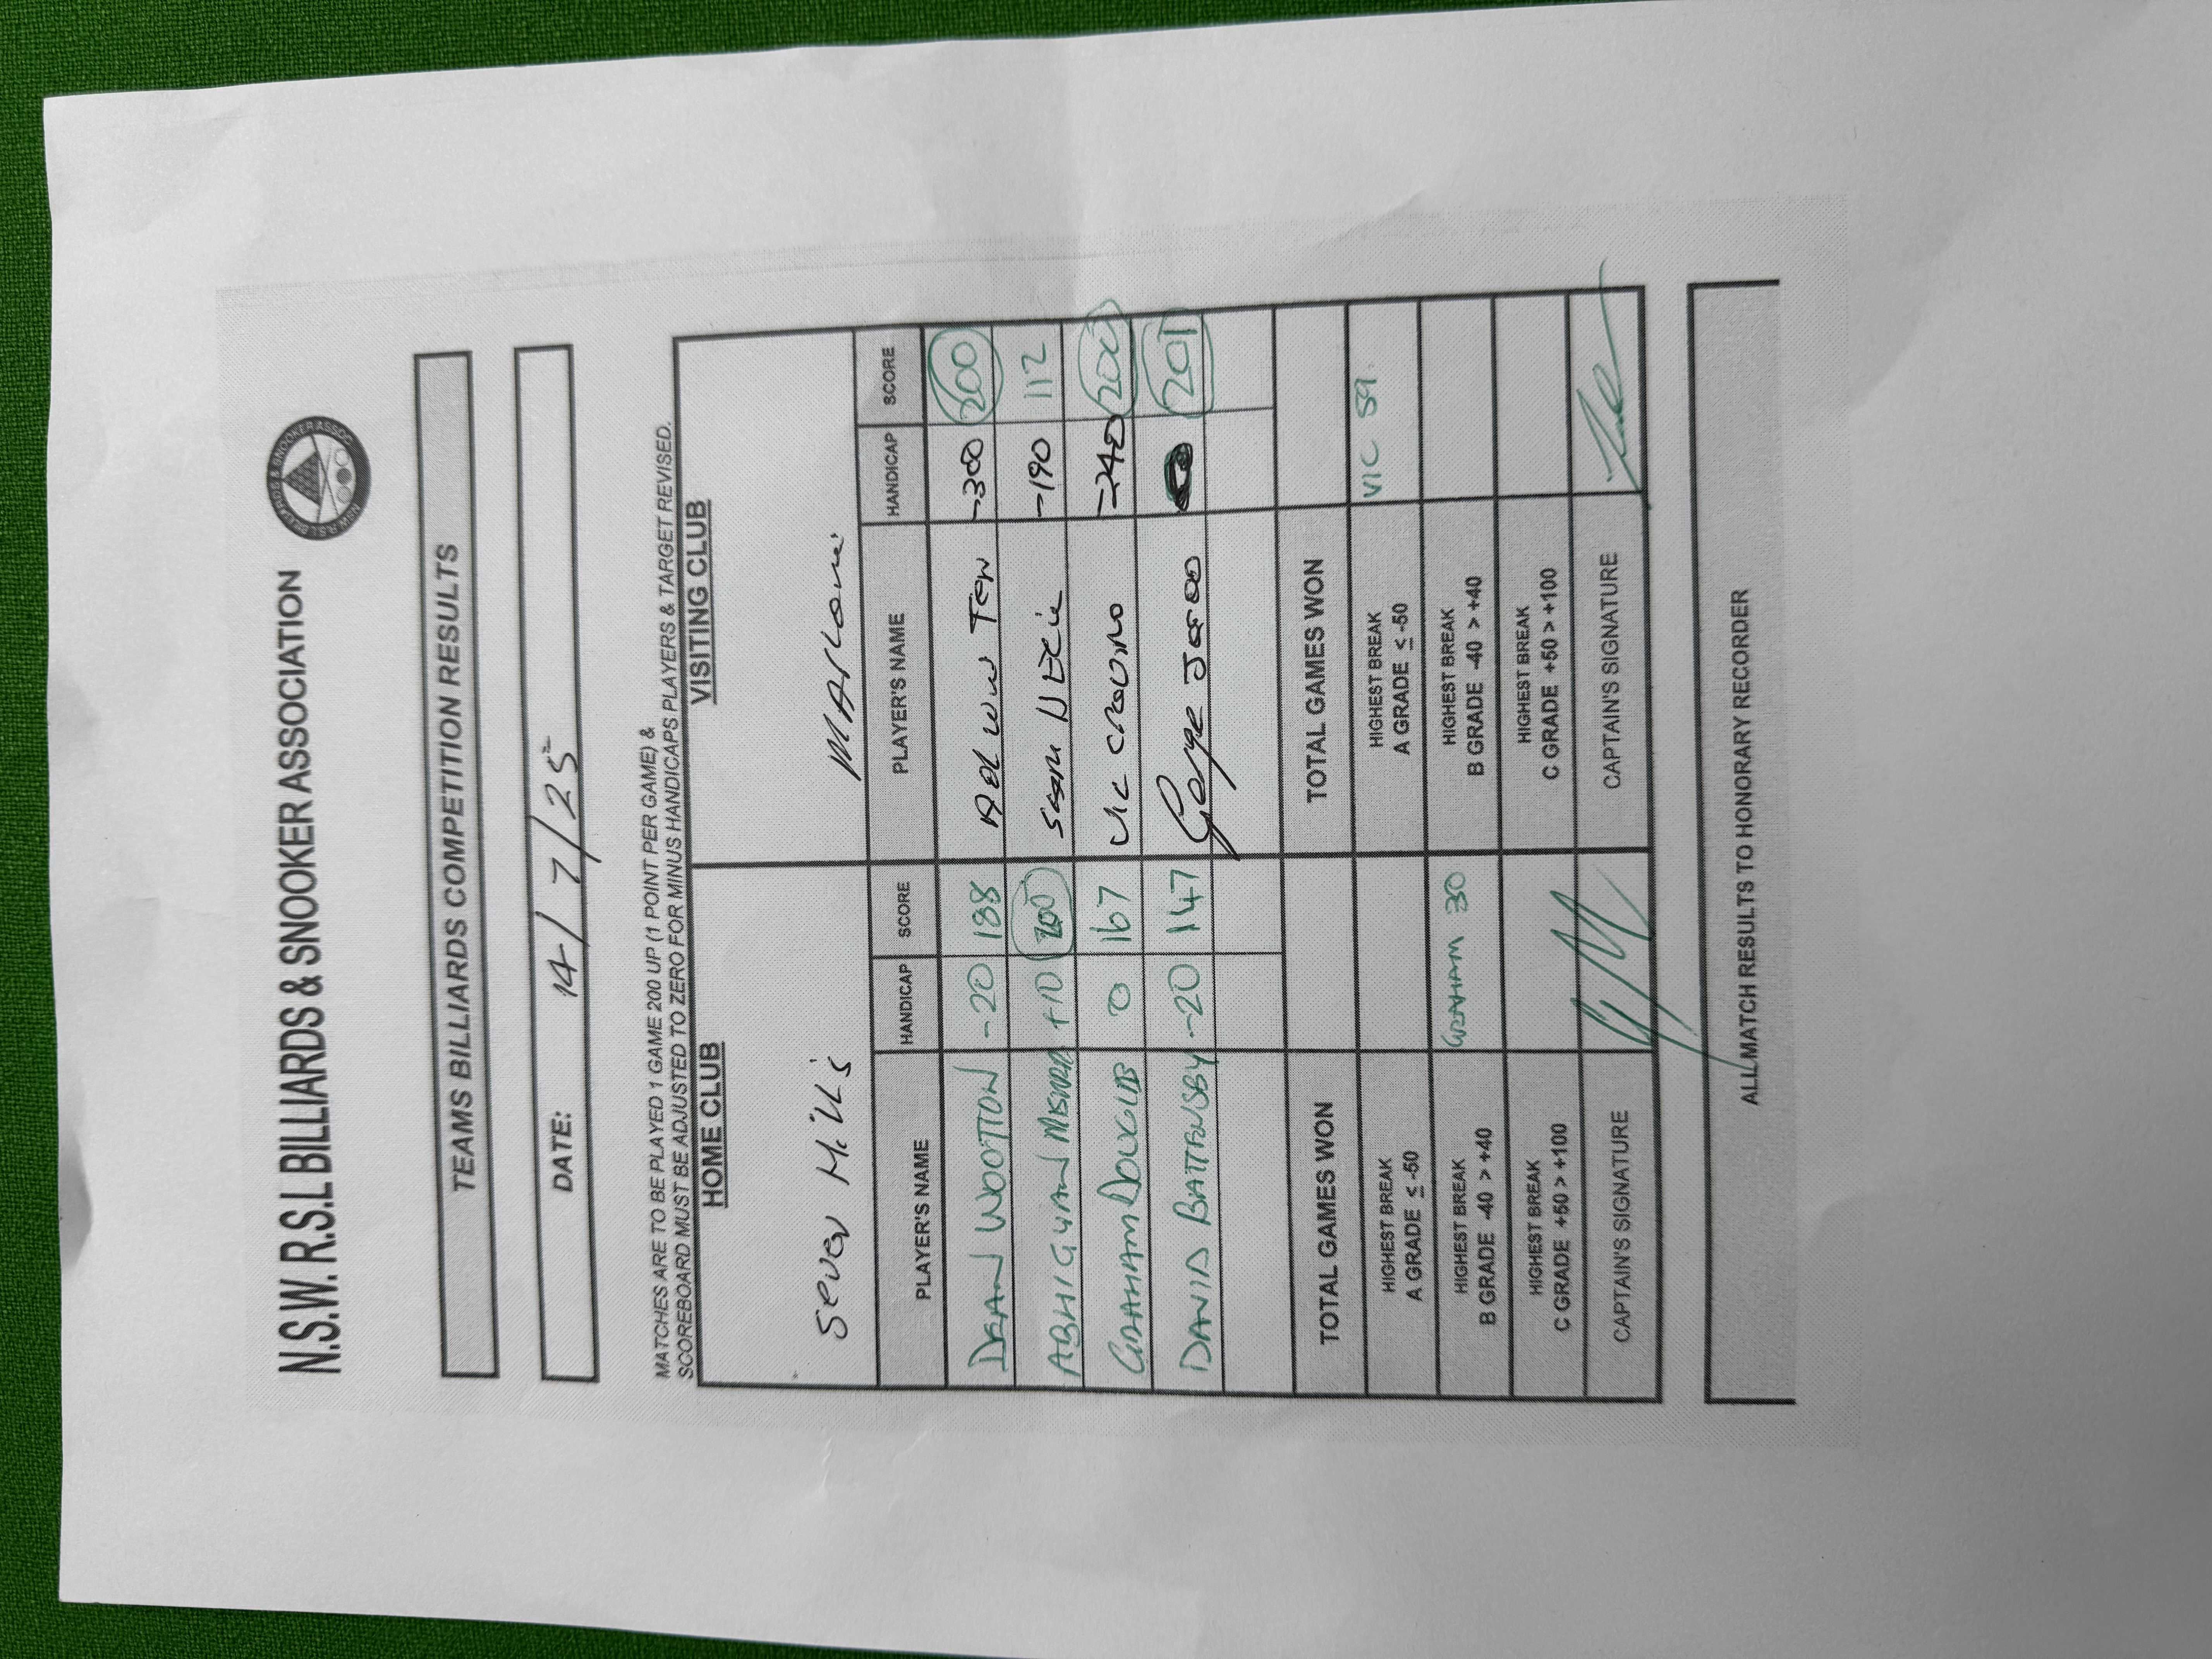 N.S.W. R.S.L BILLIARDS & SNOOKER ASSOCIATION
TEAMS BILLIARDS COMPETITION RESULTS
DATE: 14/7/25
MATCHES ARE TO BE PLAYED 1 GAME 200 UP (1 POINT PER GAME) &
SCOREBOARD MUST BE ADJUSTED TO ZERO FOR MINUS HANDICAPS PLAYERS & TARGET REVISED.
HOME CLUB VISITING CLUB
Seven Hills
PLAYER'S NAME HANDICAP SCORE PLAYER'S NAME HANDICAP SCORE
DEAN WOOTTON -20 188 -300 200
ABHIGYAN +10 200 -190 112
GRAHAM DOUGLAS 0 167 Vic -240 200
DAVID BATTENSBY -20 147 George 201
TOTAL GAMES WON TOTAL GAMES WON
HIGHEST BREAK HIGHEST BREAK
A GRADE ≤ -50 A GRADE ≤ -50 VIC 59.
HIGHEST BREAK HIGHEST BREAK
B GRADE -40 > +40 GRAHAM 30 B GRADE -40 > +40
HIGHEST BREAK HIGHEST BREAK
C GRADE +50 > +100 C GRADE +50 > +100
CAPTAIN'S SIGNATURE CAPTAIN'S SIGNATURE
ALL MATCH RESULTS TO HONORARY RECORDER